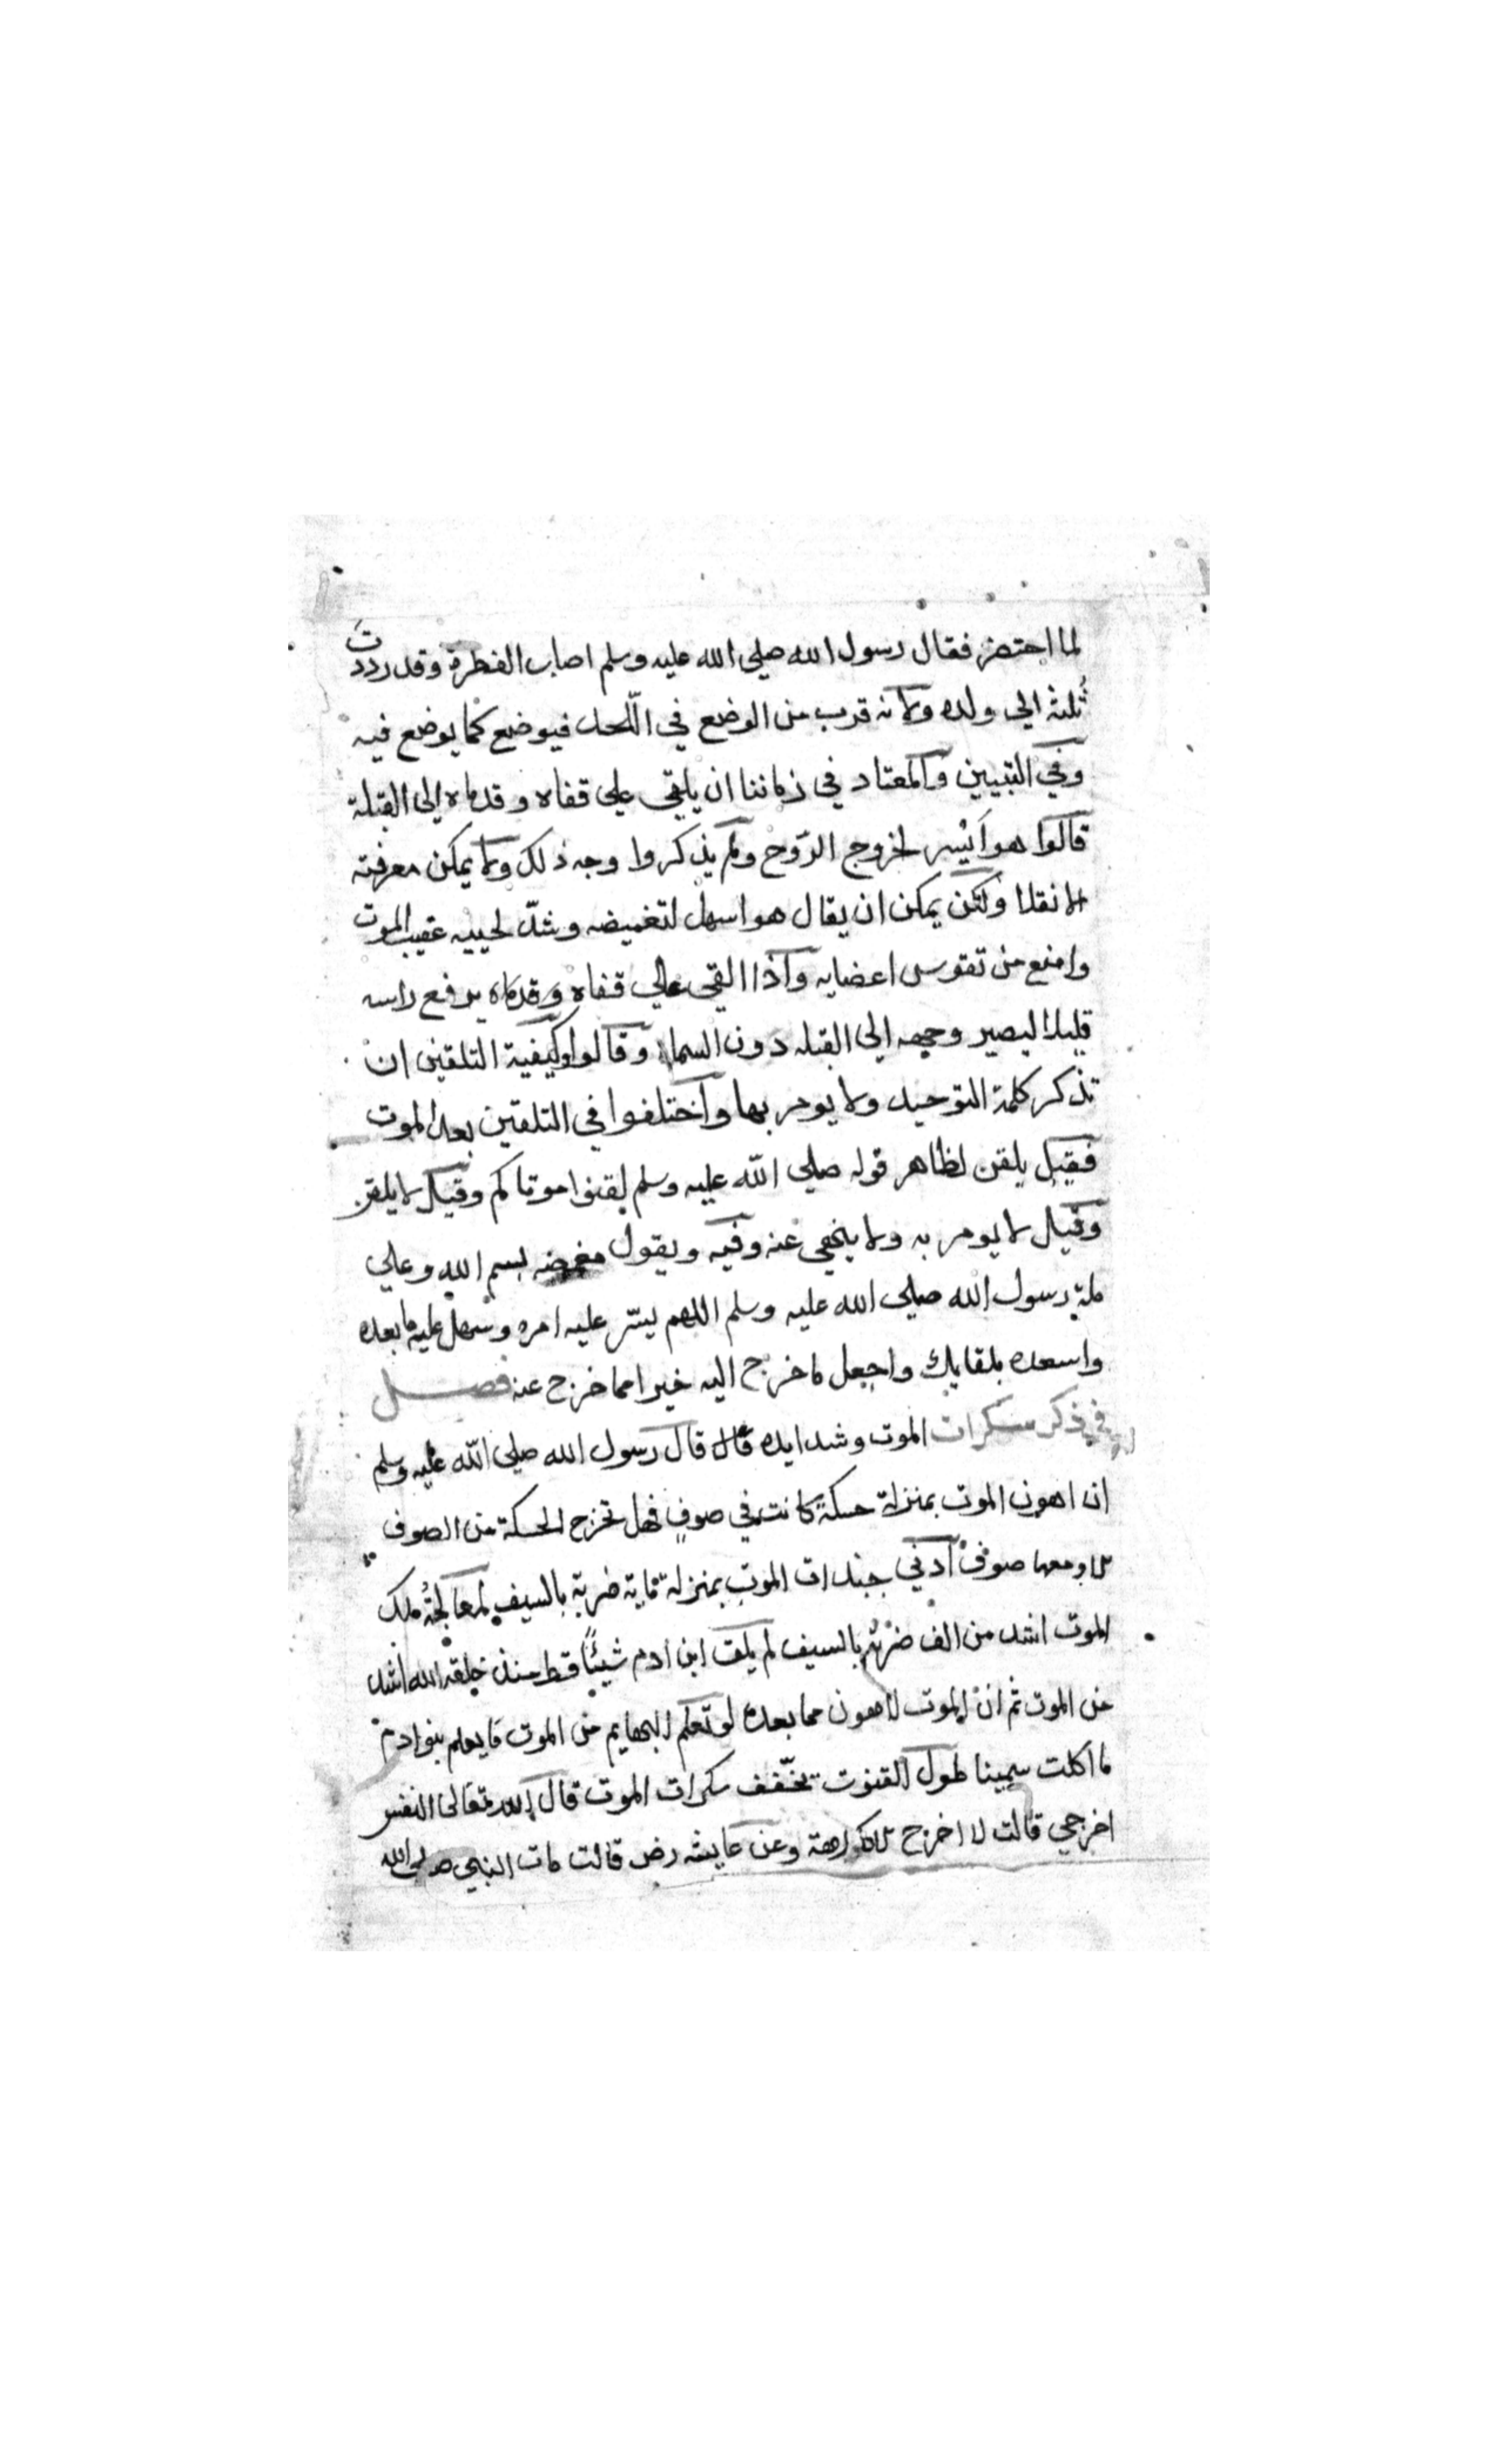 لما احتضر فقال رسول الله صلي الله عليه وسلم اصاب الفطرة وقد رددتَ
ثُلثه الي ولده ولانه قرب من الوضع في اللّحد فيوضع كما يوضع فيه
وفي التبيين والمعتاد في زماننا ان يلقي علي قفاه وقدماه الي القبلة
قالوا هو اَيْسر لخروج الرّوح ولم يذكروا وجه ذلك ولا يمكن معرفته
الا نقلا ولكن يمكن ان يقال هو اسهل لتغميضه وشدّ لحييه عقيب الموت
وامنع من تقوس اعضايه واذا القي علي قفاه وقدماه يرفع راسه
قليلا ليصير وجهه الي القبله دون السماء وقالوا وكيفية التلقين ان
تذكر كلمة التوحيد ولا يومر بها واختلفوا في التلقين بعد الموت
فقيل يلقن لظاهر قوله صلي الله عليه وسلم لقنوا موتاكم وقيل لا يلقن
وقيل لا يومر به ولا ينهي عنه وفيه ويقول مغمضه بسم الله وعلي
ملة رسول الله صلي الله عليه وسلم اللهم يسّر عليه امره وسهل عليه ما بعده
واسعده بلقايك واجعل ما خرج اليه خيرا مما خرج عنه فصل
في ذكر سكرات الموت وشدايده قال قال رسول الله صلي الله عليه وسلم
ان اهون الموت بمنزلة حسكة كانت في صوفٍ فهل تخرج الحسكة من الصوف
الا ومعها صوفٌ ادني جبدات الموت بمنزلة ماية ضربة بالسيف لمعالجةُ ملك
الموت اشد من الف ضربة بالسيف لم يلق ابن ادم شيئًا قط منذ خلقه الله اشد
من الموت ثم ان الموت لاهون مما بعده لو تعلم البهايم من الموت ما يعلم بنو ادم
ما اكلت سمينا طول القنوت تخفّف سكرات الموت قال الله تعالى للنفس
اخرجي قالت لا اخرج الا كراهة وعن عايشه رض قالت مات النبي صلي الله